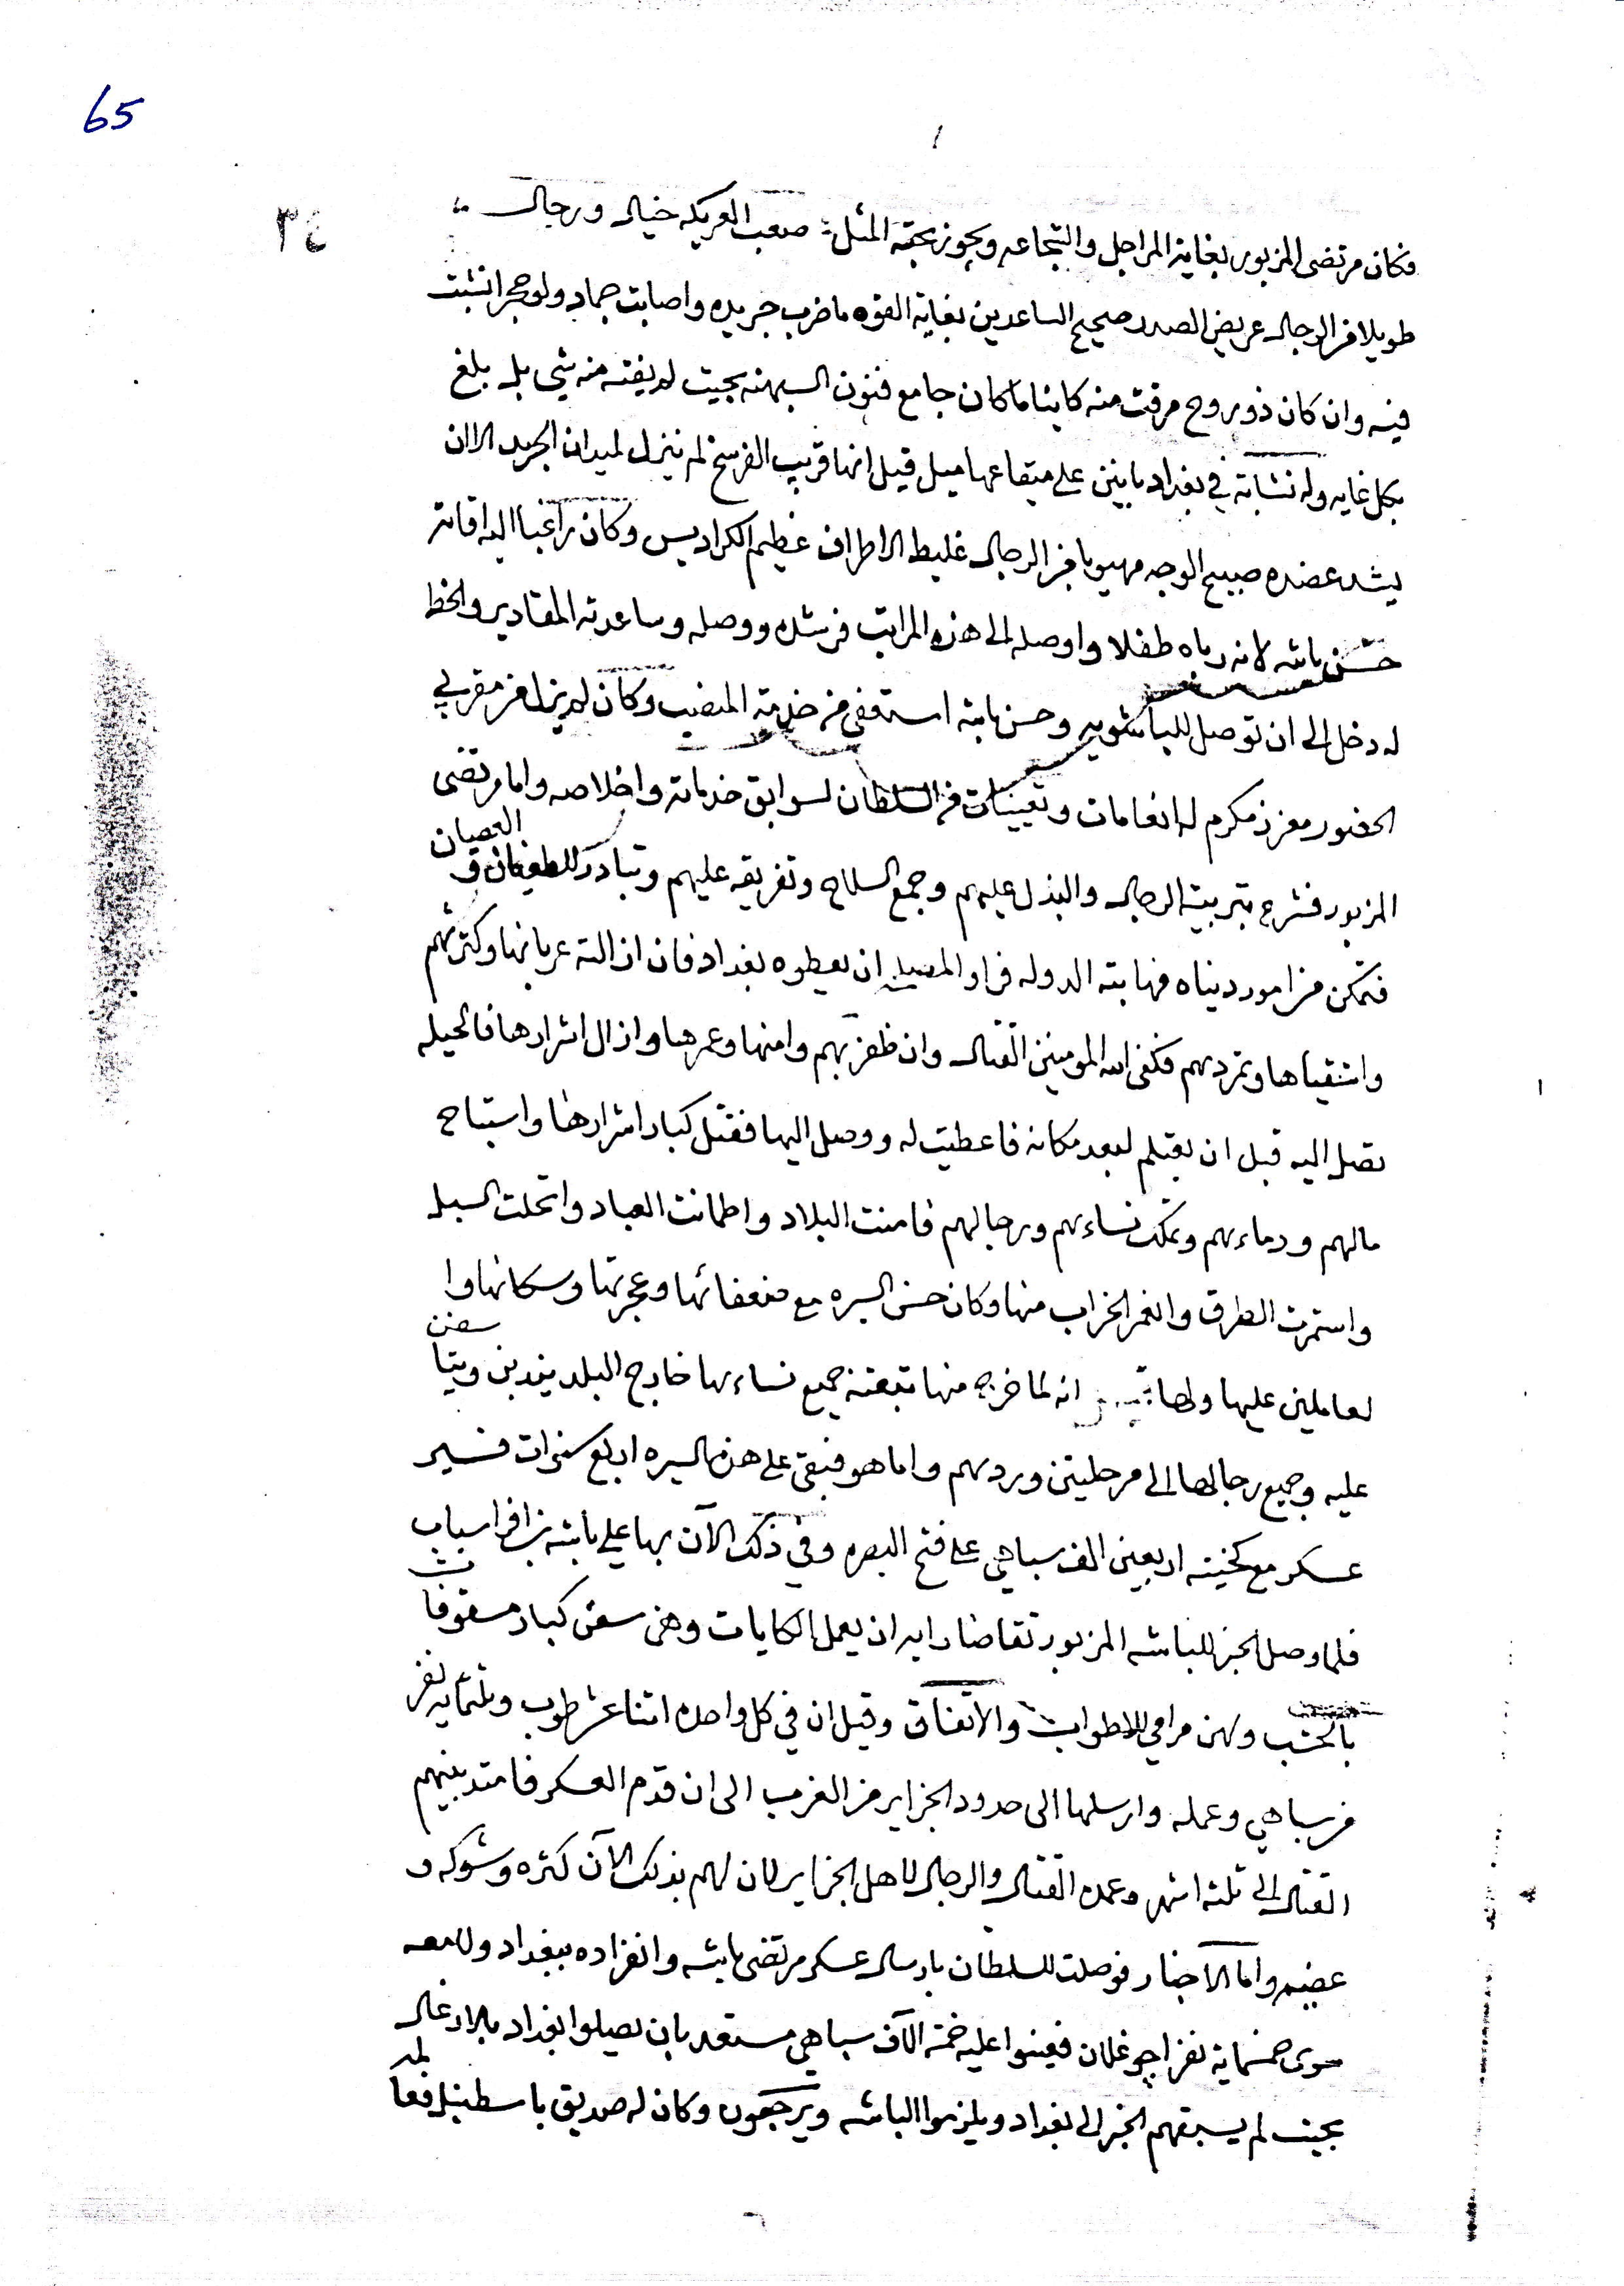 65
٣٤
فكان مرتضى المزبور بغاية المراجل والشجاعه ويجوز بحقه المثل: صعب العريكه خيال ورجال
طويلا من الرجال عريض الصدر صحيح الساعدين بغاية القوه ما ضرب جريده واصابت جماد ولو حجرا نشبت
فيه وان كان ذو روح مرقت منه كاينا ما كان جامع فنون السبهنه بحيث لم يفته منه شي بل بلغ
بكل غايه وله نشابة في بغداد بايتين على ميقاعها ميل قيل انها قريب الفرسخ لم ينزل لميدان الجريد الا ان
يشد عضده صبيح الوجه مهيوبا من الرجال غليظ الاطراف عظيم الكراديس وكان راغبا اليه اقاته
حسن باشه لانه رباه طفلا واوصله الى هذه المراتب فرشده ووصله وساعدته المقادير والحظ
له دخل الى ان توصل للباشويه وحسن باشه استعفى من خدمة المنصب وكان لم يزل من مقربي
الحضور معزز مكرم له انعامات وتعيينات من السلطان لسوابق خدماته واخلاصه واما مرتضى
المزبور فشرع بتربية الرجال والبذل عليهم وجمع السلاح وتفريقه عليهم وتبادر للطغيان و العصيان
فتمكن من امور دنياه فهابته الدوله فراو المصيلح ان يعطوه بغداد فان ازالته عربانها وكثرتهم
واشقياها وتمردهم فكفى الله المومنين القتال وان ظفر بهم وامنها وعمرها وازال اشرارها فالحيله
تصل اليه قبل ان يقتلم لبعد مكانه فاعطيت له ووصل اليها فقتل كبار اشرارها واستباح
مالهم ودماءهم وتملك نساءهم ورجالهم فامنت البلاد واطمانت العباد وانحلت السبل
واستمرت الطرق وانغمر الخراب منها وكان حسن السيره مع ضعفائها وعجزتها وسكانها وا
لعاملين عليها ولها انه لما خرج منها تبعته جميع نساءها خارج البلد يندبن ويتاسفن
عليه وجميع رجالها الى مرحليتن وردهم واما هو فبقى على هذه السيره اربع سنوات فسير
عسكر مع كخيته اربعين الف سباهي على فتح البصره وفي ذلك الآن بها علي باشه بن افراسياب
فلما وصل الخبر للباشه المزبور تقاضا رايه ان يعمل الكايات وهن سفن كبار مسقوفات
بالخشب ولهن مرامي للاطواب والاتفاق وقيل ان في كل واحده اثنا عشر طوب وثلثمايه نفر
من سباهي وعمله وارسلها الى حدود الجزاير من الغرب الى ان قدم العسكر فامتد بينهم
القتال الى ثلثه اشهر وعمده القتال والرجال لاهل الجزاير لان لهم بذلك الآن كثره وشوكه و
عضيم واما الاخبار فوصلت للسلطان بارسال عسكر مرتضى باشه وانفراده ببغداد ولا معه
سوى خمسماية نفر اجوغلان فعينوا عليه خمسة آلاف سباهي مستعد بان يصلوا بغداد بالارغال
بحيث لم يسبقهم الخبر الى بغداد ويلزموا الباشه ويرجعون وكان له صديق باسطنبل فعا